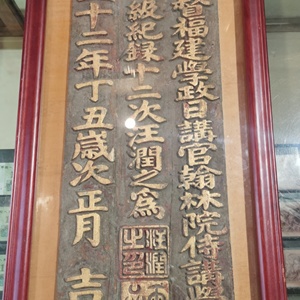 督福建學政日講官翰林院侍講
級紀録十二次汪潤之為
十二年丁丑歲次正月 吉
汪潤之印